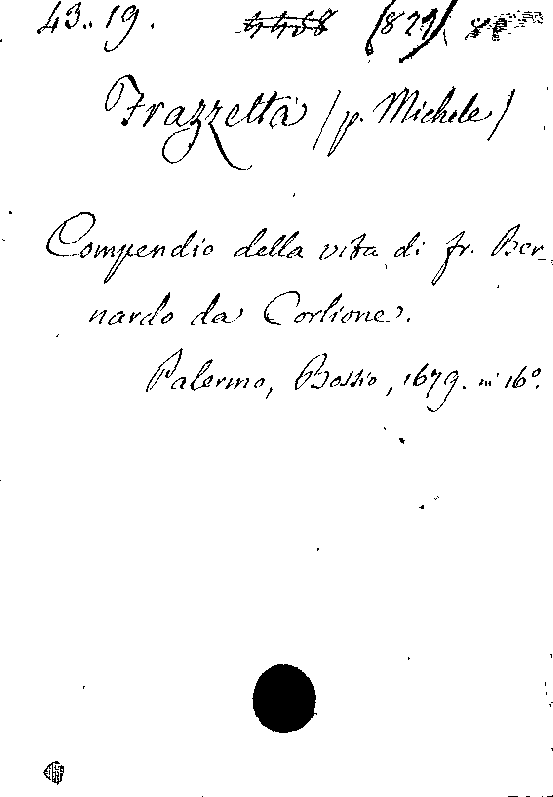 43..19. 4458 (821)
Frazzetta (p. Michele)
Compendio della vita di fr. Ber-
nardo da Corlione.
Palermo, Bossio, 1679. in 16º.